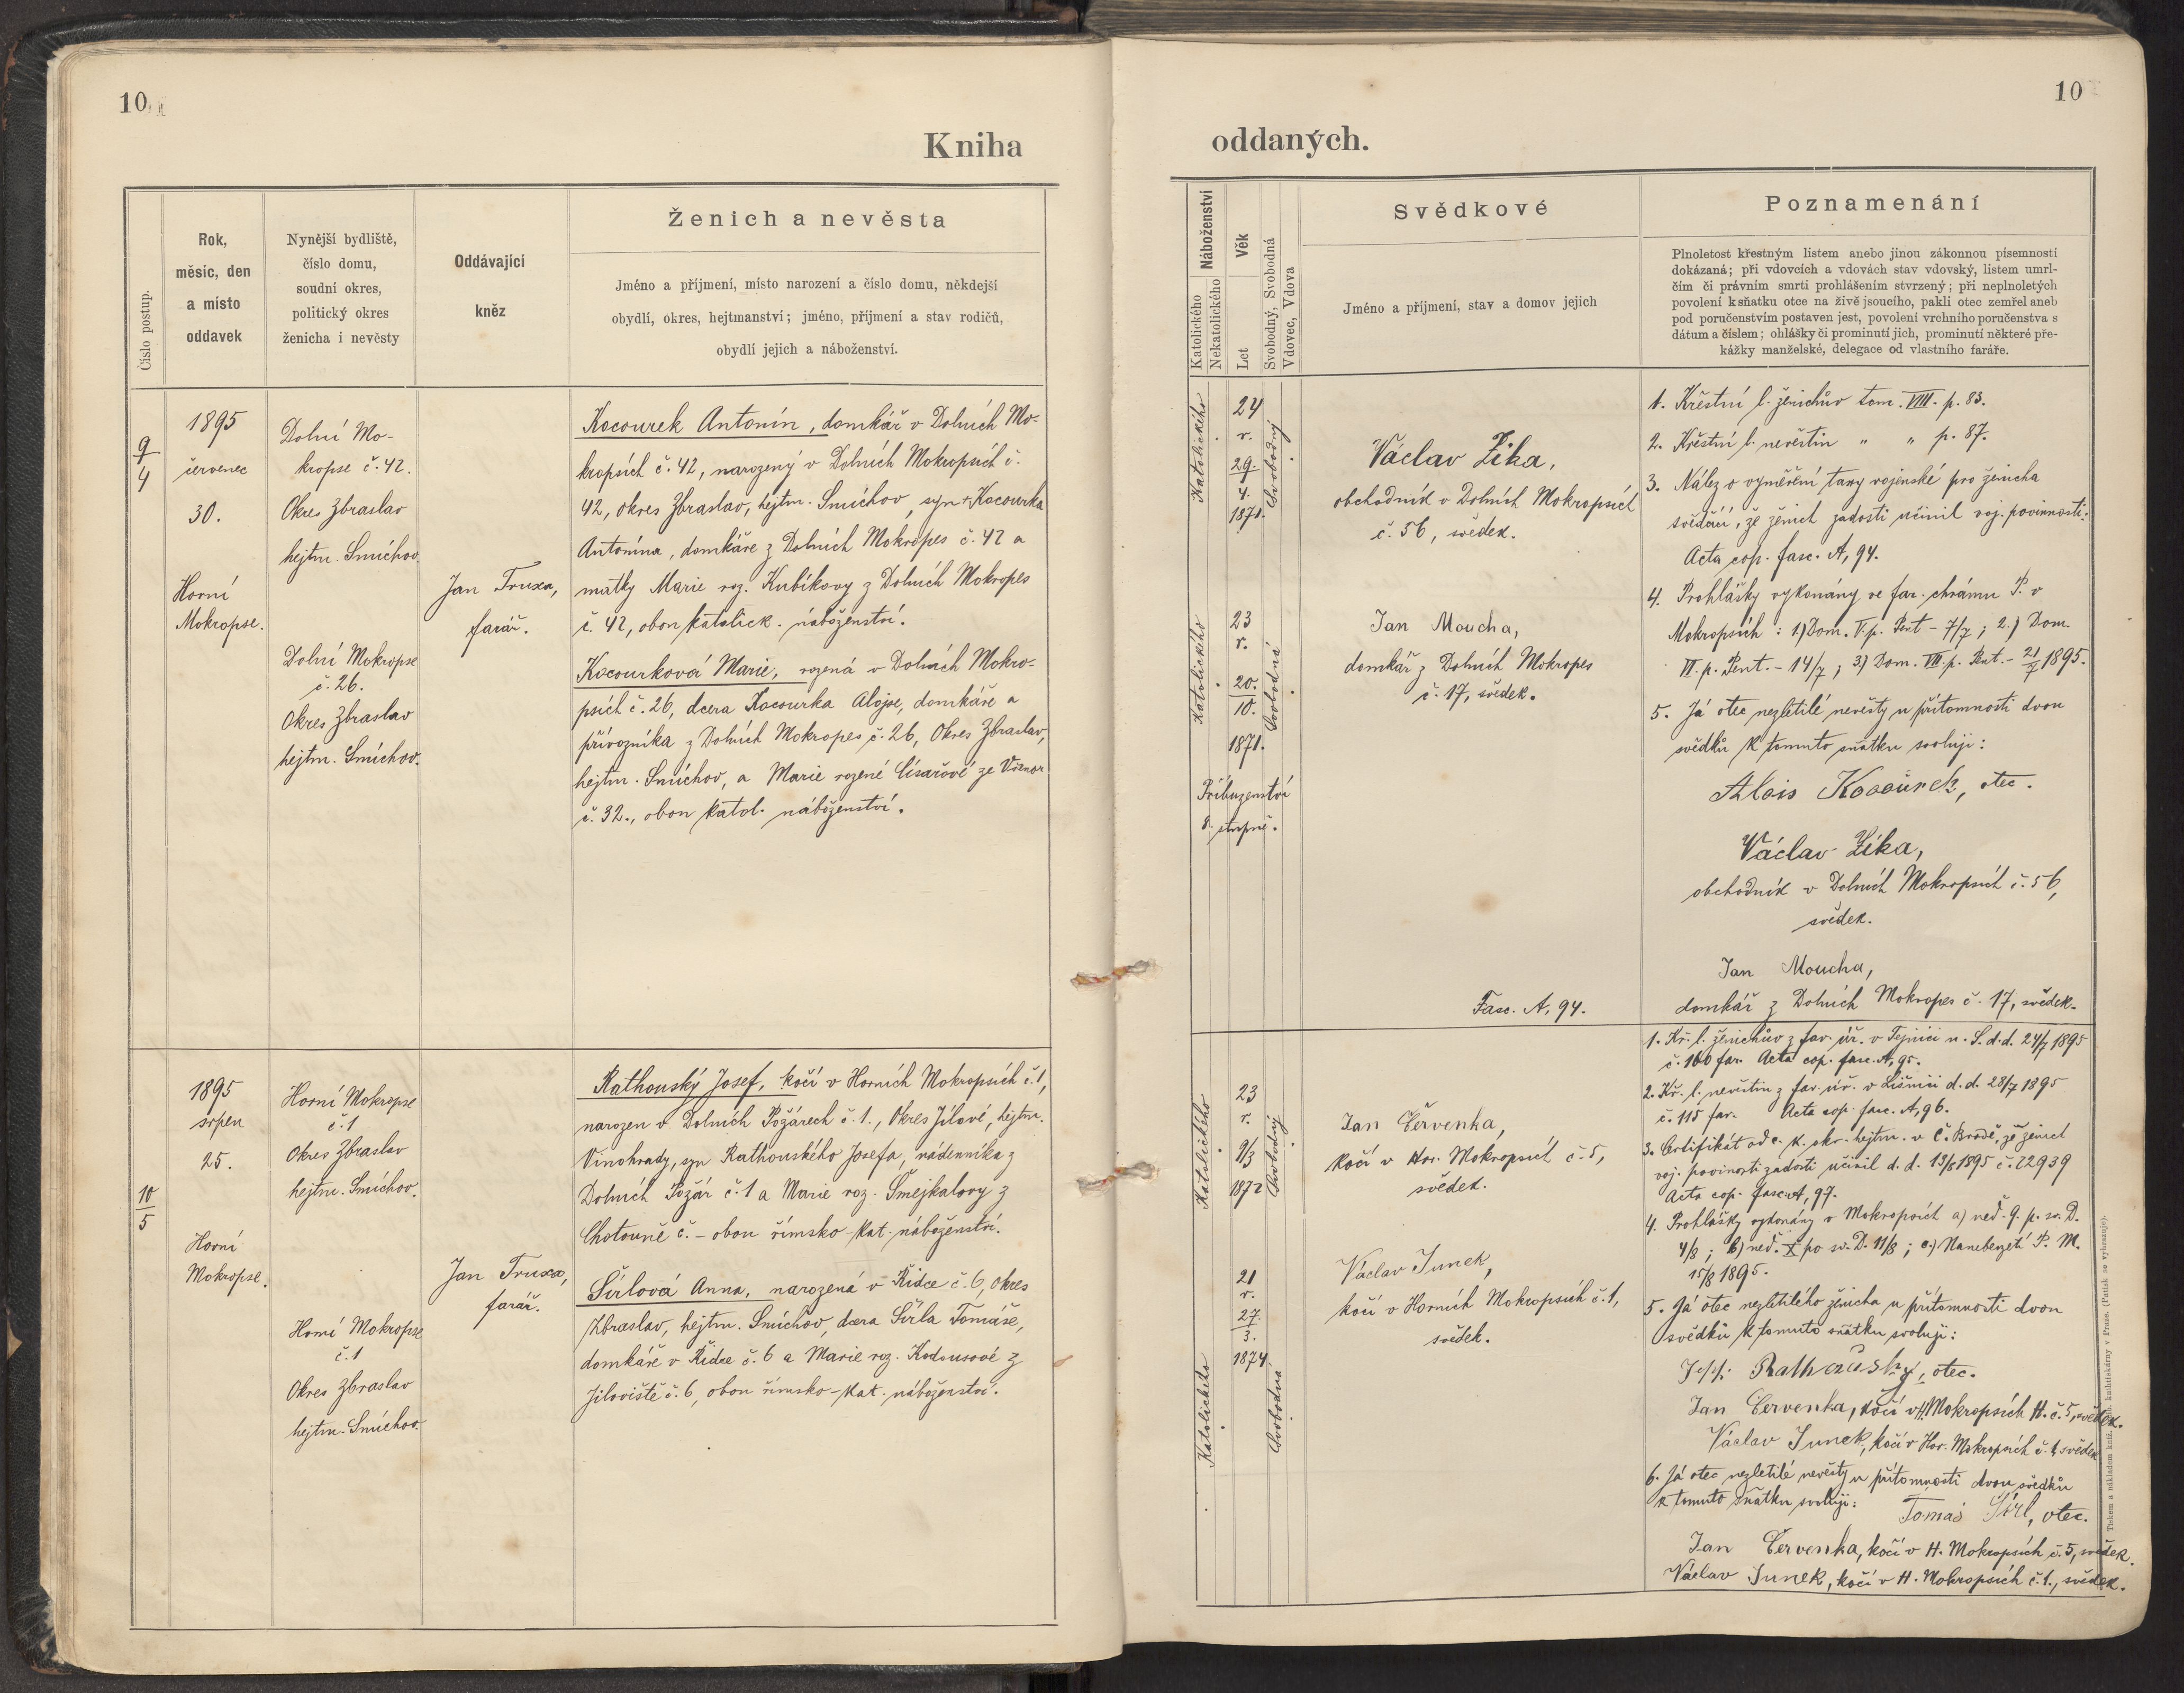 10
Kniha
Číslo postup.
Rok,
měsíc, den
a místo
oddavek
Nynější bydliště,
číslo domu,
soudní okres,
politický okres
ženicha i nevěsty
Oddávající
kněz
Ženich a nevěsta
Jméno a příjmení, místo narození a číslo domu, někdejší
obydlí, okres, hejtmanství; jméno, příjmení a stav rodičů,
obydlí jejich a náboženství.
9
4
1895
červenec
30.
Horní
Mokropse.
Dolní Mo-
kropse č. 42.
Okres Zbraslav
hejtm. Smíchov.
Dolní Mokropse
č. 26.
Okres Zbraslav
hejtm. Smíchov.
Jan Truxa,
farář.
Kocourek Antonín, domkář v Dolních Mo-
kropsích č. 42, narozený v Dolních Mokropsích č.
42, okres Zbraslav, hejtm. Smíchov, syn † Kocourka
Antonína, domkáře z Dolních Mokropes č. 42 a
matky Marie roz. Kubíkovy z Dolních Mokropes
č. 42, obou katolick. náboženství.
Kocourková Marie, rozená v Dolních Mokro-
psích č. 26, dcera Kocourka Alojse, domkáře a
přívozníka z Dolních Mokropes č. 26, Okres Zbraslav,
hejtm. Smíchov, a Marie rozené Císařové ze Všenor
č. 32., obou katol. náboženství.
10
5
1895
srpen
25.
Horní
Mokropse.
Horní Mokropse
č. 1
Okres Zbraslav
hejtm. Smíchov.
Horní Mokropse
č. 1
Okres Zbraslav
hejtm. Smíchov.
Jan Truxa,
farář.
Rathouský Josef, kočí v Horních Mokropsích č. 1,
narozen v Dolních Požárech č. 1., Okres Jílové, hejtm.
Vinohrady, syn Rathouského Josefa, nádenníka z
Dolních Požár č. 1 a Marie roz. Smejkalovy z
Chotouně č. - obou římsko-kat. náboženství.
Šírlová Anna, narozená v Řidce č. 6, okres
Zbraslav, hejtm. Smíchov, dcera Šírla Tomáše,
domkáře v Řidce č. 6 a Marie roz. Kodousové z
Jíloviště č. 6, obou římsko-kat. náboženství.
10
oddaných.
Náboženství
Katolického
Nekatolického
Věk
Let
Svobodný, Svobodná
Vdovec, Vdova
Svědkové
Jméno a příjmení, stav a domov jejich
Poznamenání
Plnoletost křestným listem anebo jinou zákonnou písemností
dokázaná; při vdovcích a vdovách stav vdovský, listem umrl-
čím či právním smrti prohlášením stvrzený; při neplnoletých
povolení k sňatku otce na živě jsoucího, pakli otec zemřel aneb
pod poručenstvím postaven jest, povolení vrchního poručenstva s
dátum a číslem; ohlášky či prominutí jich, prominutí některé pře-
kážky manželské, delegace od vlastního faráře.
Katolického
24
r.
29.
4.
1871.
Svobodný
Katolického
23
r.
20.
10.
1871.
Svobodná
Příbuzenství
8. stupně.
Václav Zíka,
obchodník v Dolních Mokropsích
č. 56, svědek.
Jan Moucha,
domkář z Dolních Mokropes
č. 17, svědek.
Fasc. A, 94.
1. Křestní l. ženichův tom. VIII. p. 83.
2. Křestní l. nevěstin " " p. 87.
3. Nález o vyměření taxy vojenské pro ženicha
svědčící, že ženich zadosti učinil voj. povinnosti:
Acta cop. fasc. A, 94.
4. Prohlášky vykonány ve far. chrámu P. v
Mokropsích: 1) Dom. V. p. Pent - 7/7; 2.) Dom.
VI. p. Pent. - 14/7; 3) Dom. VII. p. Pent. - 21/7 1895.
5. Já otec nezletilé nevěsty u přítomnosti dvou
svědků k tomuto sňatku svoluji:
Alois Kocourek, otec.
Václav Zíka,
obchodník v Dolních Mokropsích č. 56,
svědek.
Jan Moucha,
domkář z Dolních Mokropes č. 17, svědek.
Katolického
23
r.
9/3
1872
Svobodný
Katolického
21
r.
27.
3.
1874.
Svobodná
Jan Červenka,
kočí v Hor. Mokropsích č. 5,
svědek.
Václav Junek,
kočí v Horních Mokropsích č. 1,
svědek.
1. Kř. l. ženichův z far. úř. v Tejnici n. S. d. d. 24/7 1895
č. 100 far. Acta cop. fasc. A, 95.
2. Kř. l. nevěstin z far. úř. v Líšnici d. d. 28/7 1895
č. 115 far. Acta cop. fasc. A, 96.
3. Certifikát od c. k. okr. hejtm. v Č. Brodě, že ženich
voj. povinosti zadosti učinil d. d. 13/8 1895 č. 22939
Acta cop. fasc. A, 97.
4. Prohlášky vykonány v Mokropsích a) neď. 9. p. sv. D.
4/8; b) neď. X po sv. D. 11/8; c.) Nanebevzetí P. M.
15/8 1895.
5. Já otec nezletilého ženicha u přítomnosti dvou
svědků k tomuto sňatku svoluji:
Rathouský, otec.
Jan Červenka, kočí v H. Mokropsích H. č. 5, svědek.
Václav Junek, kočí v Hor. Mokropsích č. 1, svědek
6. Já otec nezletilé nevěsty u přítomnosti dvou svědků
k tomuto sňatku svoluji:
Tomáš Šírl, otec.
Jan Červenka, kočí v H. Mokropsích č. 5, svědek.
Václav Junek, kočí v H. Mokropsích č. 1., svědek.